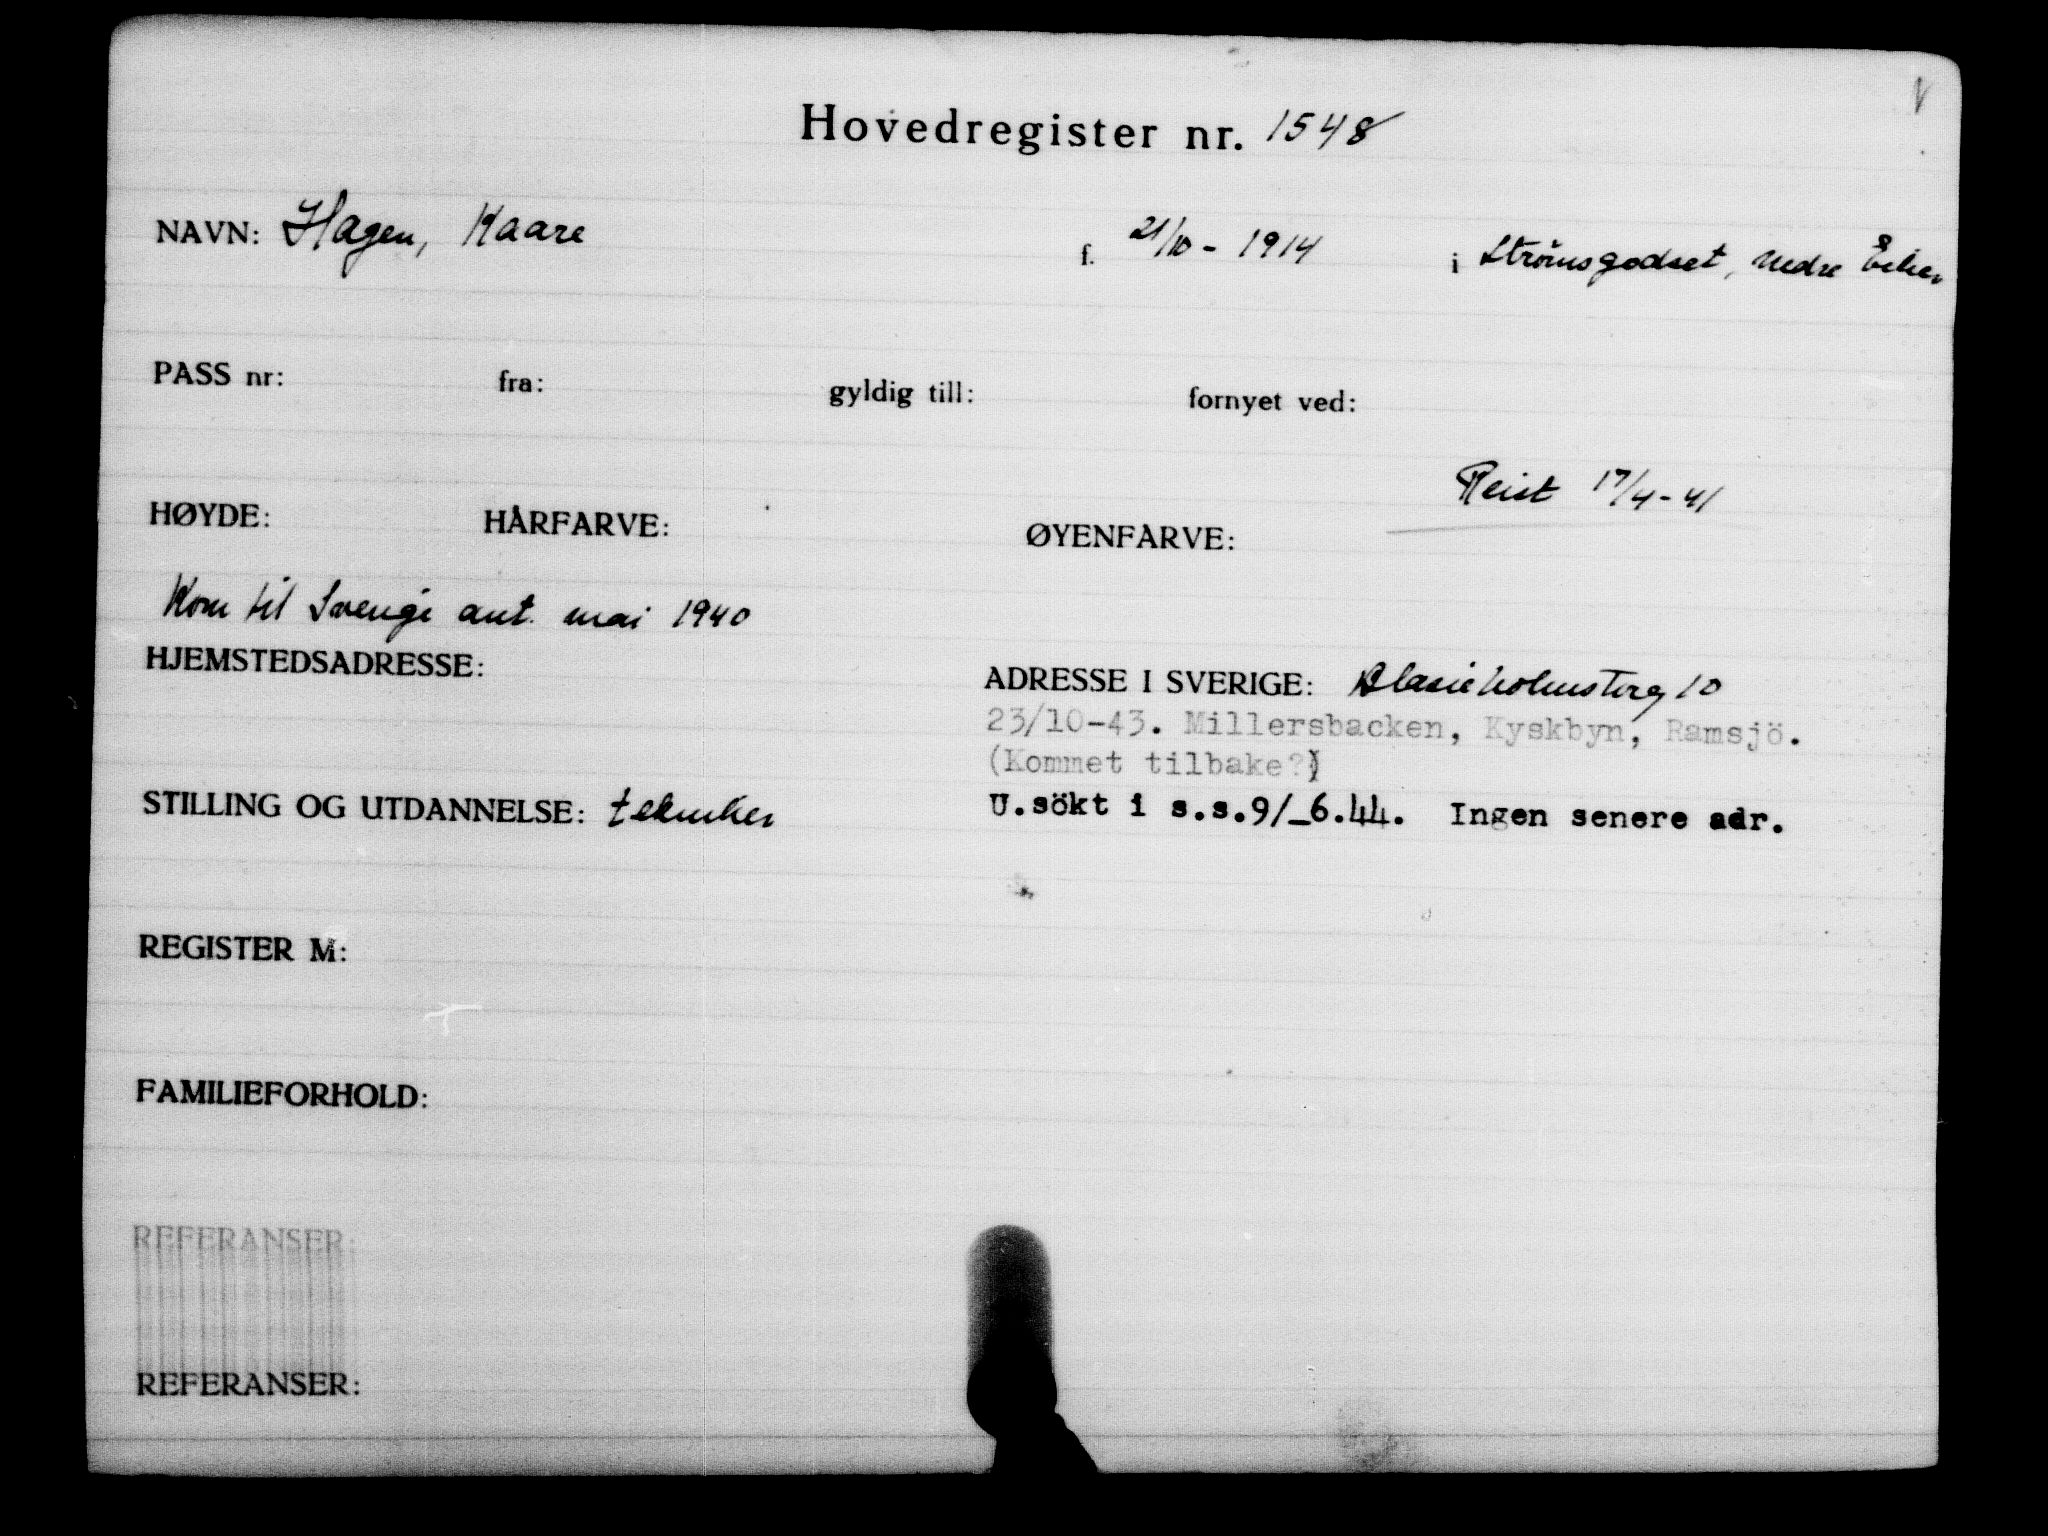 Hovedregister nr. 1548
NAVN: Hagen, Kaare f. 21/10 - 1914 i Strömsgodset, nedre Eiker
PASS nr: fra: gyldig till: fornyet ved:
Reist 17/4-41
HØYDE: HÅRFARVE: ØYENFARVE:
Kom til Sverige ant. mai 1940
HJEMSTEDSADRESSE: ADRESSE I SVERIGE: Blasieholmstorg 10
23/10-43. Millersbacken, Kyskbyn, Ramsjö.
(Kommet tilbake?)
STILLING OG UTDANNELSE: tekniker U.sökt i s.s.9/_6.44. Ingen senere adr.
REGISTER M:
FAMILIEFORHOLD:
REFERANSER:
REFERANSER: